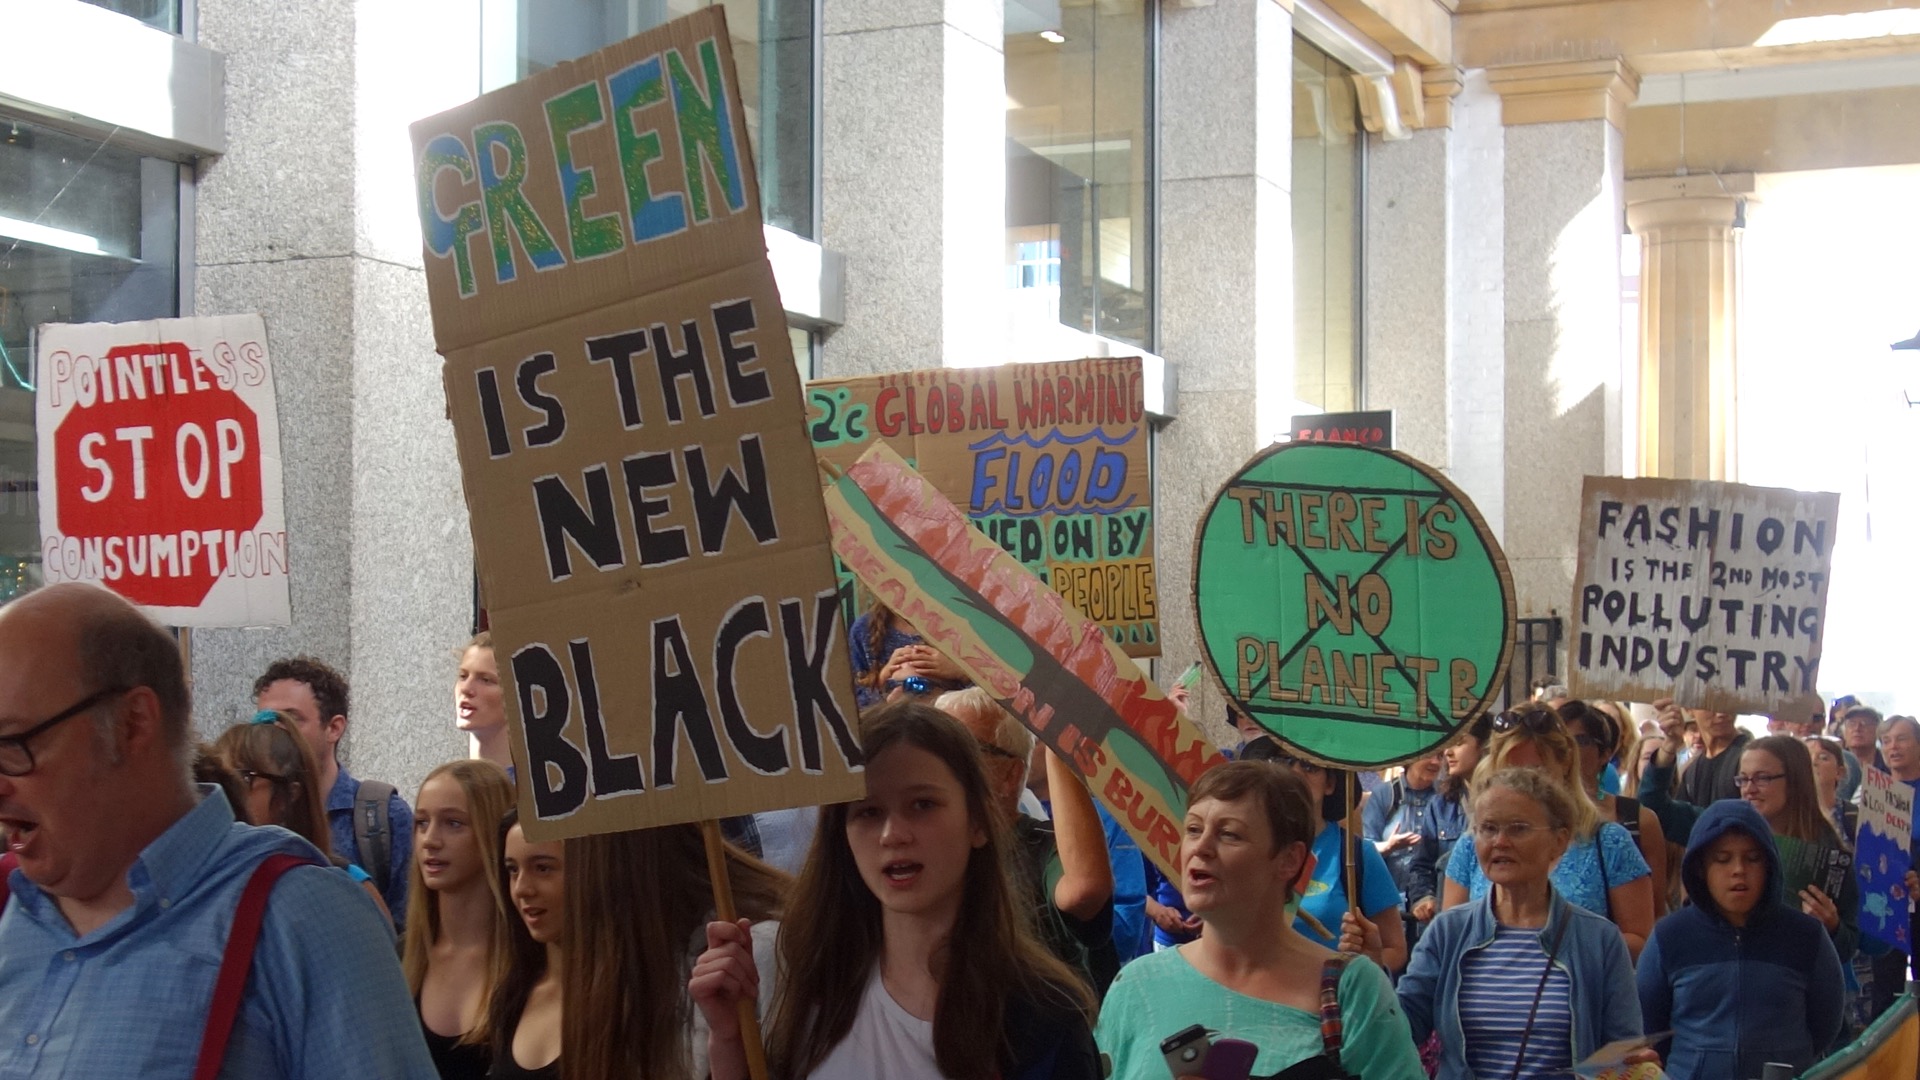 POINTLESS
STOP
CONSUMPTION
GREEN
IS THE
NEW
BLACK
2°C GLOBAL WARMING
FLOOD
ON BY
PEOPLE
THE AMAZON IS BUR
THERE IS
NO
PLANET B
FASHION
IS THE 2ND MOST
POLLUTING
INDUSTRY
FAST
FASHION
SLOW
DEATH